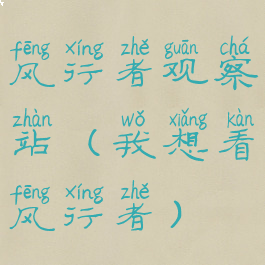 fēng xíng zhě guān chá
风行者观察
zhàn wǒ xiǎng kàn
站（我想看
fēng xíng zhě
风行者）